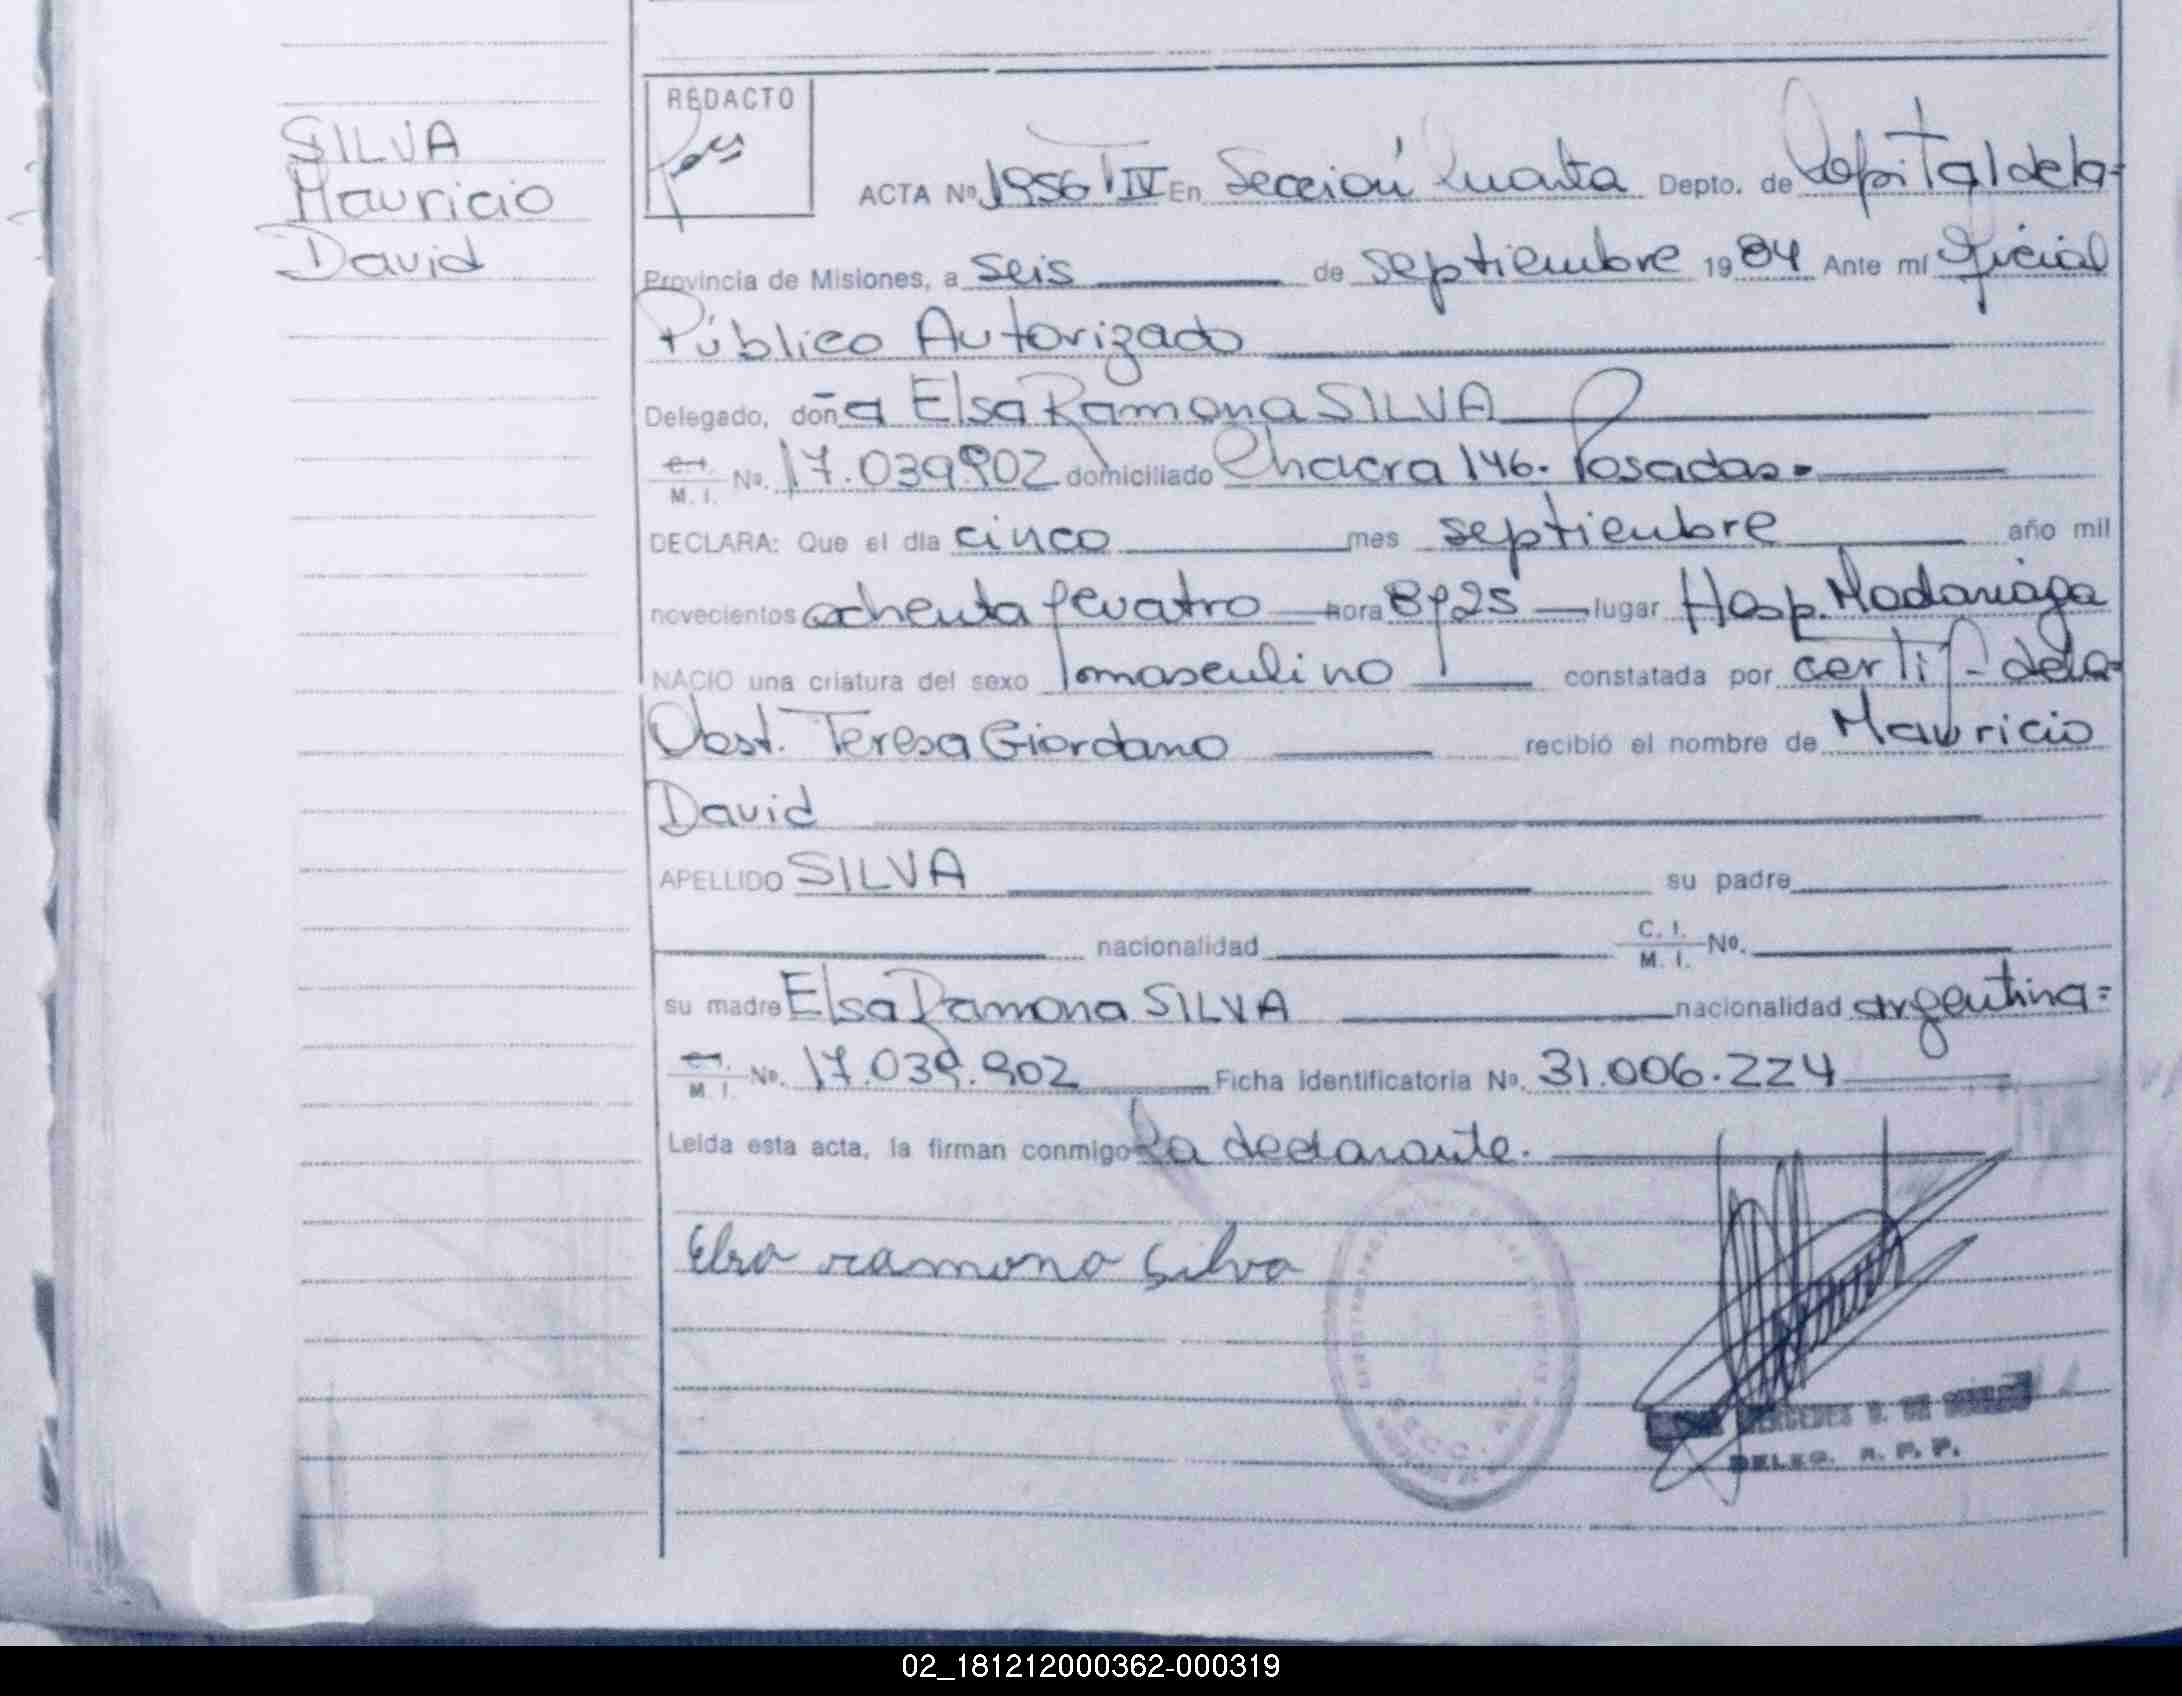 SILVA
Mauricio
David
REDACTO
ACTA Nº 1956 T IV En Sección Cuarta Depto. de Capital de la-
Provincia de Misiones, a seis de septiembre 1984 Ante mí Oficial
Público Autorizado
Delegado, doña Elsa Ramona SILVA
C.I. M. I. Nº. 17.039.902 domiciliado Chacra 146. Posadas.
DECLARA: Que el día cinco mes septiembre año mil
novecientos ochenta y cuatro hora 8y25 lugar Hosp. Madariaga
NACIO una criatura del sexo masculino constatada por certif. de la-
Obst. Teresa Giordano recibió el nombre de Mauricio
David
APELLIDO SILVA su padre
nacionalidad C. I. M. I. Nº.
su madre Elsa Ramona SILVA nacionalidad argentina=
C.I. M. I. Nº. 17.039.902 Ficha identificatoria Nº. 31.006.224
Leída esta acta, la firman conmigo la declarante.
Elsa ramona Silva
SECC.
MERCEDES
DELEG. R. P. P.
02_181212000362-000319